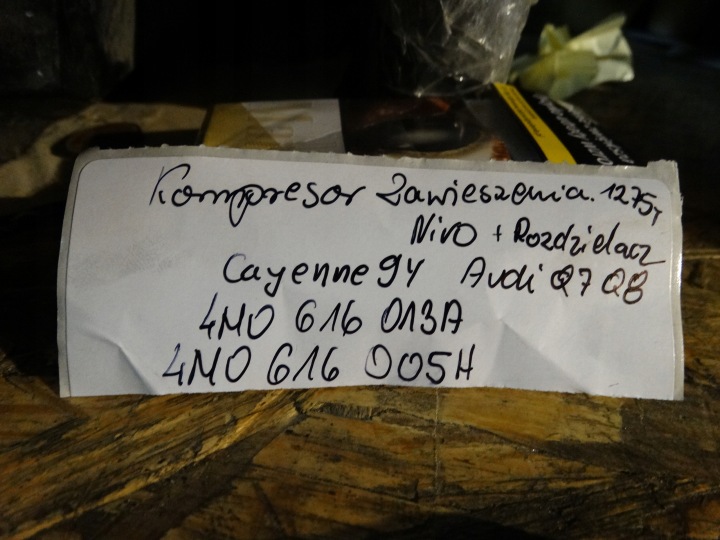 Kompresor Zawieszenia. 1275,
Nivo + Rozdzielacz
Cayenne 9Y Audi Q7 Q8
4M0 616 013A
4M0 616 005H